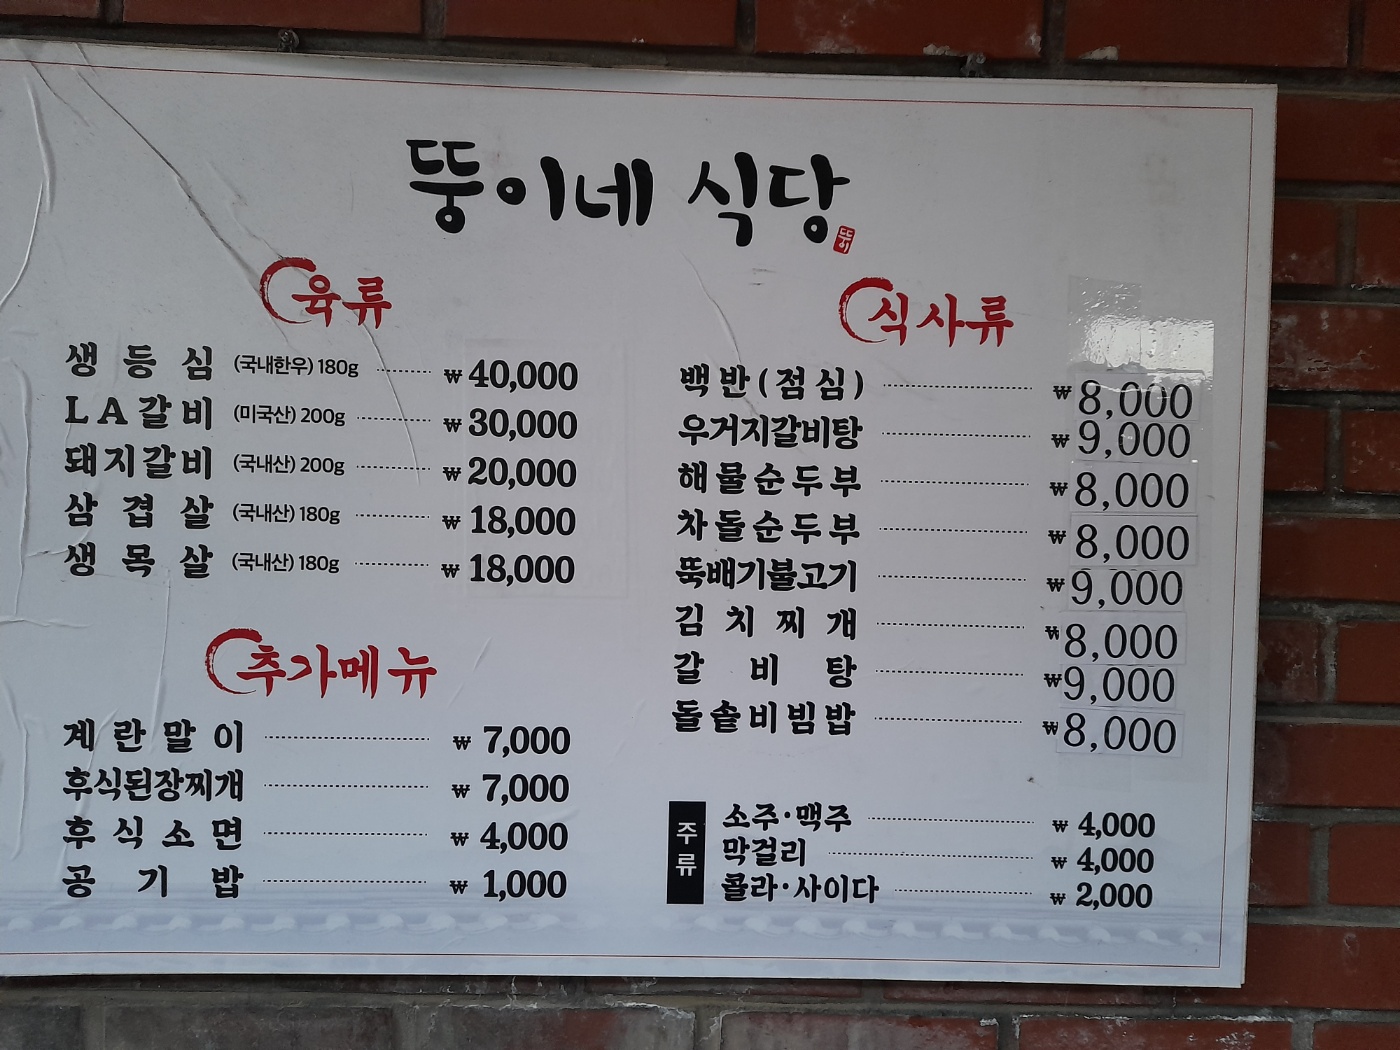 뚱이네 식당
뚱이
육류
생등심 (국내한우) 180g ₩ 40,000
LA갈비 (미국산) 200g ₩ 30,000
돼지갈비 (국내산) 200g ₩ 20,000
삼겹살 (국내산) 180g ₩ 18,000
생목살 (국내산) 180g ₩ 18,000
추가메뉴
계란말이 ₩ 7,000
후식된장찌개 ₩ 7,000
후식소면 ₩ 4,000
공기밥 ₩ 1,000
식사류
백반(점심) ₩ 8,000
우거지갈비탕 ₩ 9,000
해물순두부 ₩ 8,000
차돌순두부 ₩ 8,000
뚝배기불고기 ₩ 9,000
김치찌개 ₩ 8,000
갈비탕 ₩ 9,000
돌솥비빔밥 ₩ 8,000
주류
소주·맥주 ₩ 4,000
막걸리 ₩ 4,000
콜라·사이다 ₩ 2,000